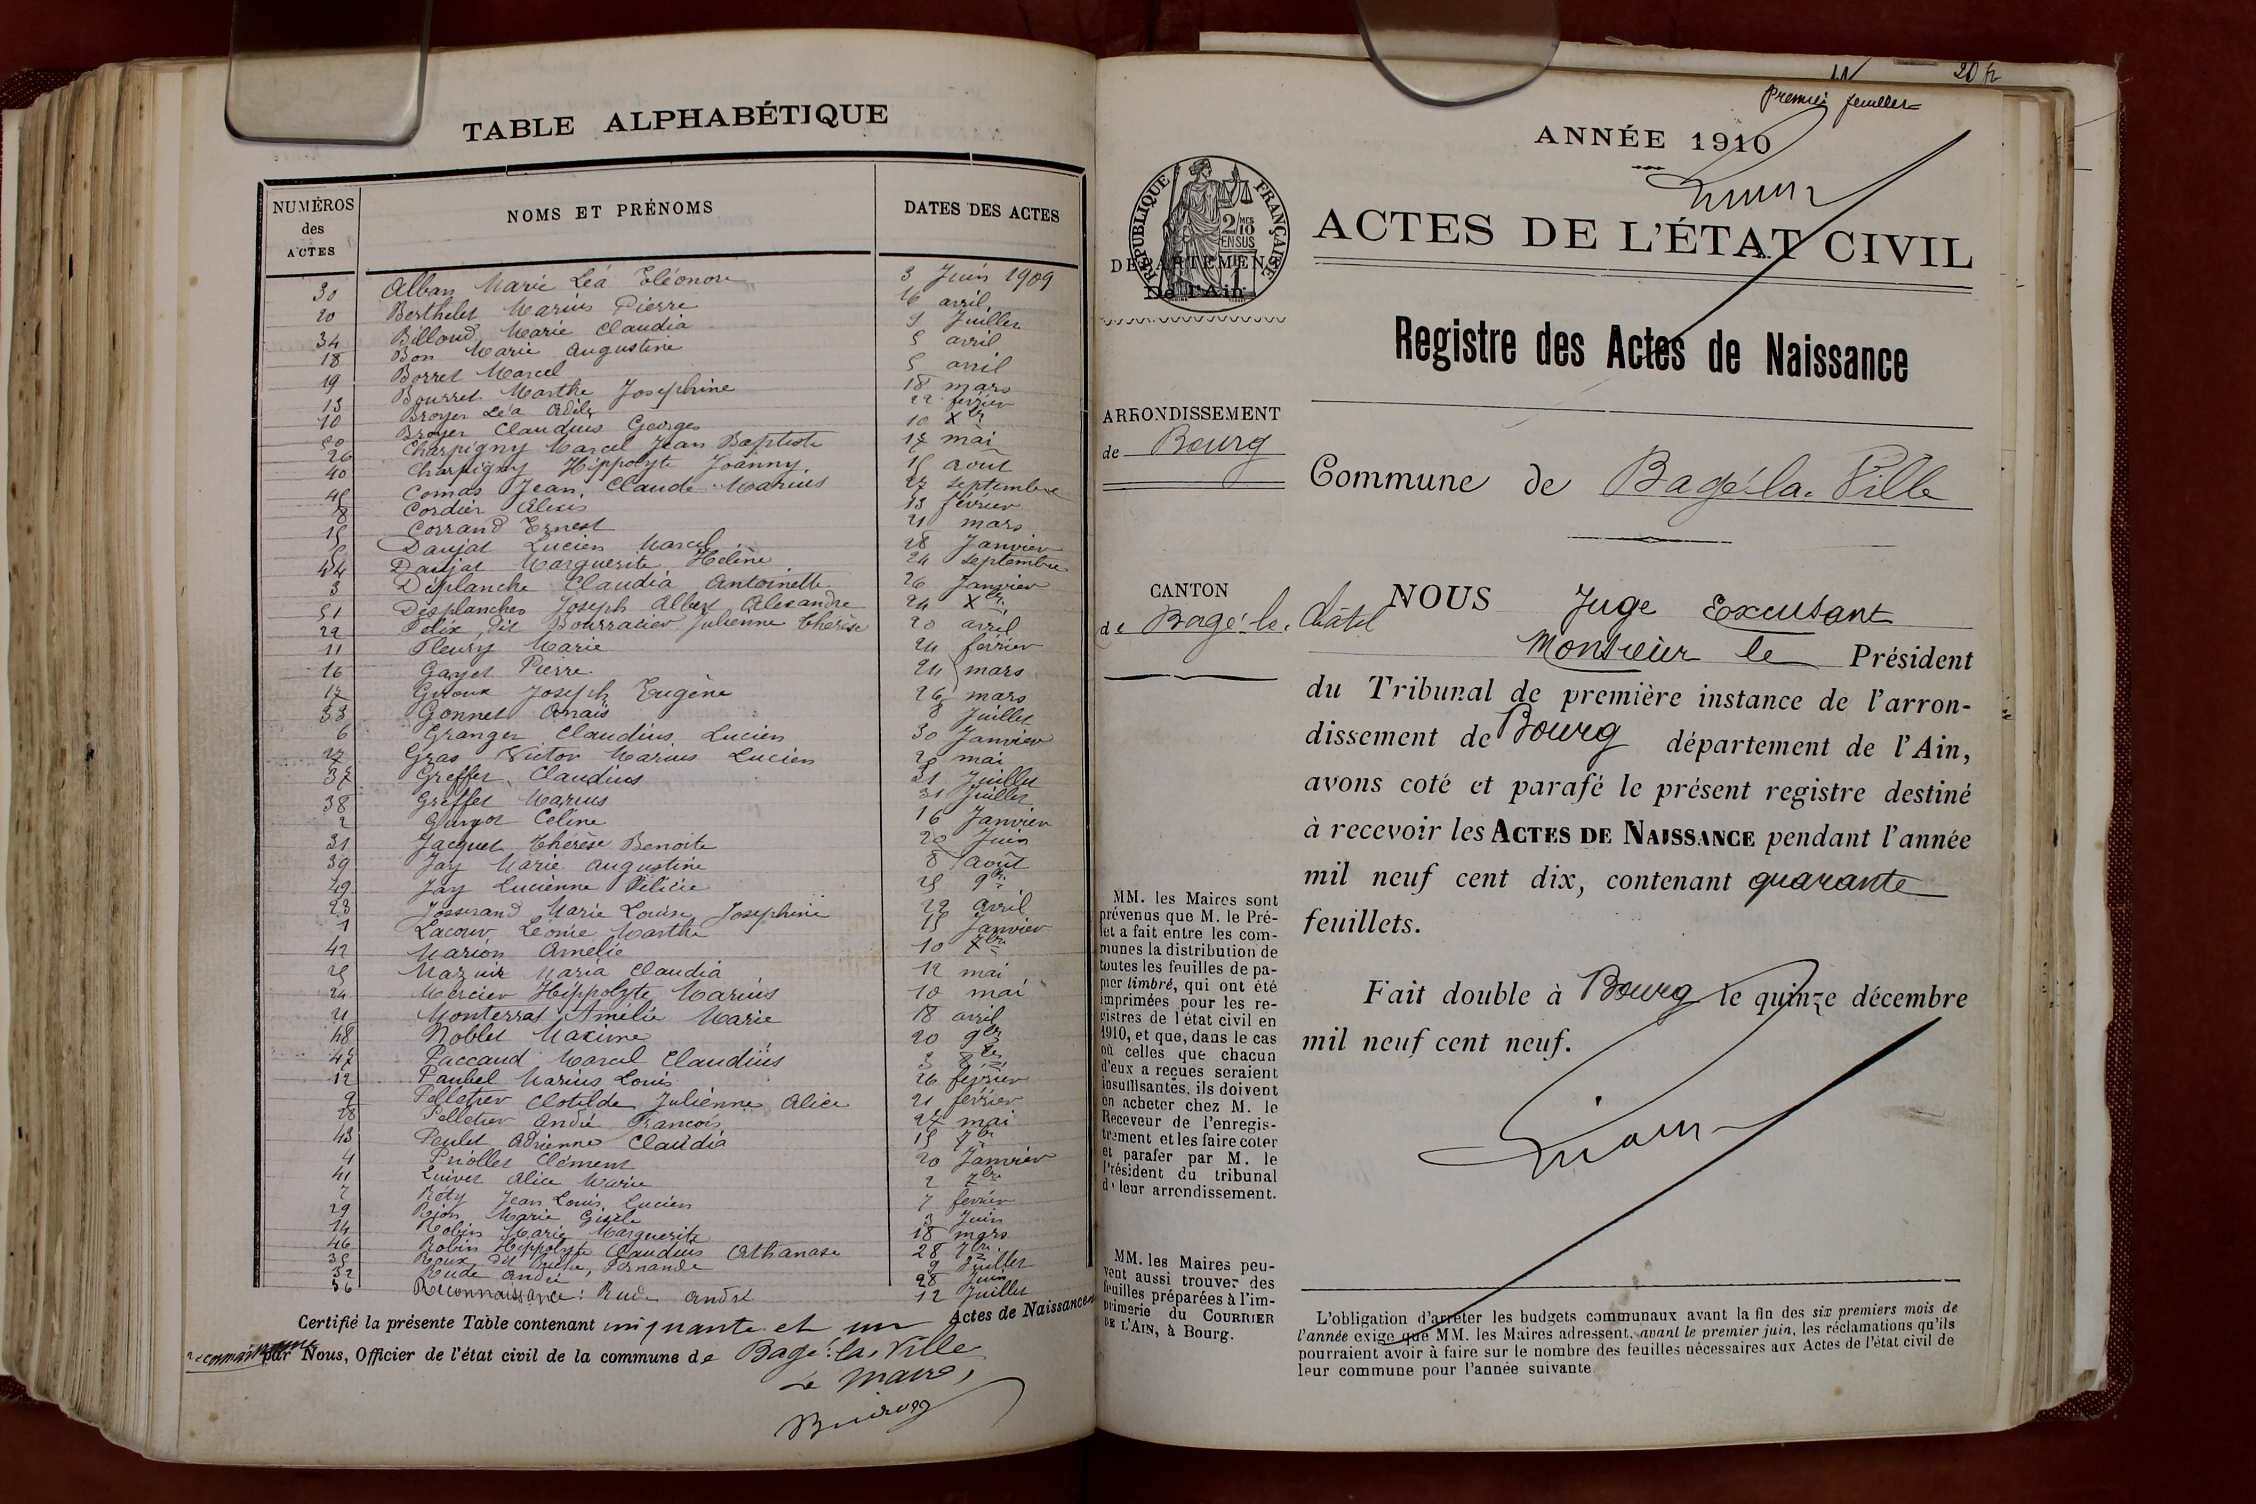 TABLE ALPHABÉTIQUE
NUMÉROS des ACTES
NOMS ET PRÉNOMS
DATES DES ACTES
30 Alban Marie Léa Eléonore 3 Juin 1909
20 Berthelet Marius Pierre 16 avril
34 Billoud Marie Claudia 9 Juillet
18 Bon Marie Augustine 5 avril
19 Borret Marcel 5 avril
13 Bourret Marthe Joséphine 18 mars
10 Broyer Léa Adèle 22 février
50 Broyer Claudius Georges 10 Xbre
26 Charpigny Marcel Jean Baptiste 17 mai
40 Charpigny Hippolyte Joanny 15 août
45 Comas Jean Claude Marius 27 septembre
8 Cordier Alexis 13 février
15 Corrand Ernest 21 mars
5 Daujat Lucien Marcel 28 Janvier
44 Daujat Marguerite Hélène 24 septembre
3 Déplanche Claudia Antoinette 26 Janvier
51 Desplanches Joseph Albert Alexandre 24 Xbre
22 Félix dit Bourracier Julienne Thérèse 20 avril
11 Fleury Marie 24 février
16 Gayet Pierre 24 mars
17 Giroux Joseph Eugène 26 mars
33 Gonnet Anaïs 8 Juillet
6 Granger Claudius Lucien 30 Janvier
27 Gras Victor Marius Lucien 20 mai
37 Greffet Claudius 31 Juillet
38 Greffet Marius 31 Juillet
2 Guyot Céline 16 Janvier
31 Jacquet Thérèse Benoite 20 Juin
39 Jay Marie Augustine 8 août
49 Jay Lucienne Félicie 25 9bre
23 Josserand Marie Louise Joséphine 22 avril
1 Lacour Léonie Marthe 15 Janvier
42 Marion Amélie 10
25 Mazuir Maria Claudia 12 mai
24 Mercier Hippolyte Marius 10 mai
21 Monterrat Amélie Marie 18 avril
48 Noblet Maxime 20 9bre
47 Paccaud Marcel Claudius 3 8bre
12 Paubel Marius Louis 26 février
9 Pelletier Clotilde Julienne Alice 21 février
28 Pelletier André François 27 mai
43 Peulet Adrienne Claudia 15 7bre
4 Priollet Clément 20 Janvier
41 Quivet Alice Marie 2 7bre
7 Réty Jean Louis Lucien 7 février
29 Rion Marie Gisèle 3 Juin
14 Robin Marie Marguerite 18 mars
46 Robin Hippolyte Claudius Athanase 28 7bre
35 Roux dit Fernande 9 Juillet
32 Rude André 28 Juin
36 Reconnaissance : Rude André 12 Juillet
Certifié la présente Table contenant cinquante et un Actes de Naissance
reconnaissance par Nous, Officier de l'état civil de la commune de Bagé-la-Ville
Le Maire,
20 fr
Premier feuillet
ANNÉE 1910
RÉPUBLIQUE FRANÇAISE
2/10 EN SUS
DÉPARTEMENT
De l'Ain
ACTES DE L'ÉTAT CIVIL
Registre des Actes de Naissance
ARRONDISSEMENT
de Bourg
Commune de Bagé-la-Ville
CANTON
de Bagé-le-Châtel
NOUS Juge Excusant
Monsieur le Président
du Tribunal de première instance de l'arron-
dissement de Bourg département de l'Ain,
avons coté et parafé le présent registre destiné
à recevoir les ACTES DE NAISSANCE pendant l'année
mil neuf cent dix, contenant quarante
feuillets.
Fait double à Bourg le quinze décembre
mil neuf cent neuf.
MM. les Maires sont
prévenus que M. le Pré-
fet a fait entre les com-
munes la distribution de
toutes les feuilles de pa-
pier timbré, qui ont été
imprimées pour les re-
gistres de l'état civil en
1910, et que, dans le cas
où celles que chacun
d'eux a reçues seraient
insuffisantes, ils doivent
en acheter chez M. le
Receveur de l'enregis-
trement et les faire coter
et parafer par M. le
Président du tribunal
de leur arrondissement.
MM. les Maires peu-
vent aussi trouver des
feuilles préparées à l'im-
primerie du COURRIER
DE L'AIN, à Bourg.
L'obligation d'arrêter les budgets communaux avant la fin des six premiers mois de
l'année exige que MM. les Maires adressent, avant le premier juin, les réclamations qu'ils
pourraient avoir à faire sur le nombre des feuilles nécessaires aux Actes de l'état civil de
leur commune pour l'année suivante